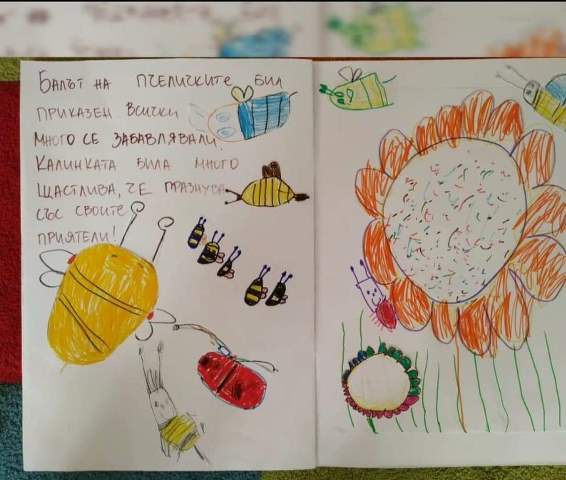 Балът на пчеличките бил
приказен всички
много се забавлявали.
Калинката била много
щастлива, че празнува
със своите
приятели!